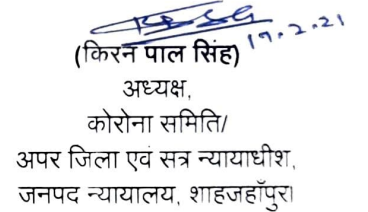 19.2.21
(किरन पाल सिंह)
अध्यक्ष,
कोरोना समिति/
अपर जिला एवं सत्र न्यायाधीश,
जनपद न्यायालय, शाहजहाँपुर।